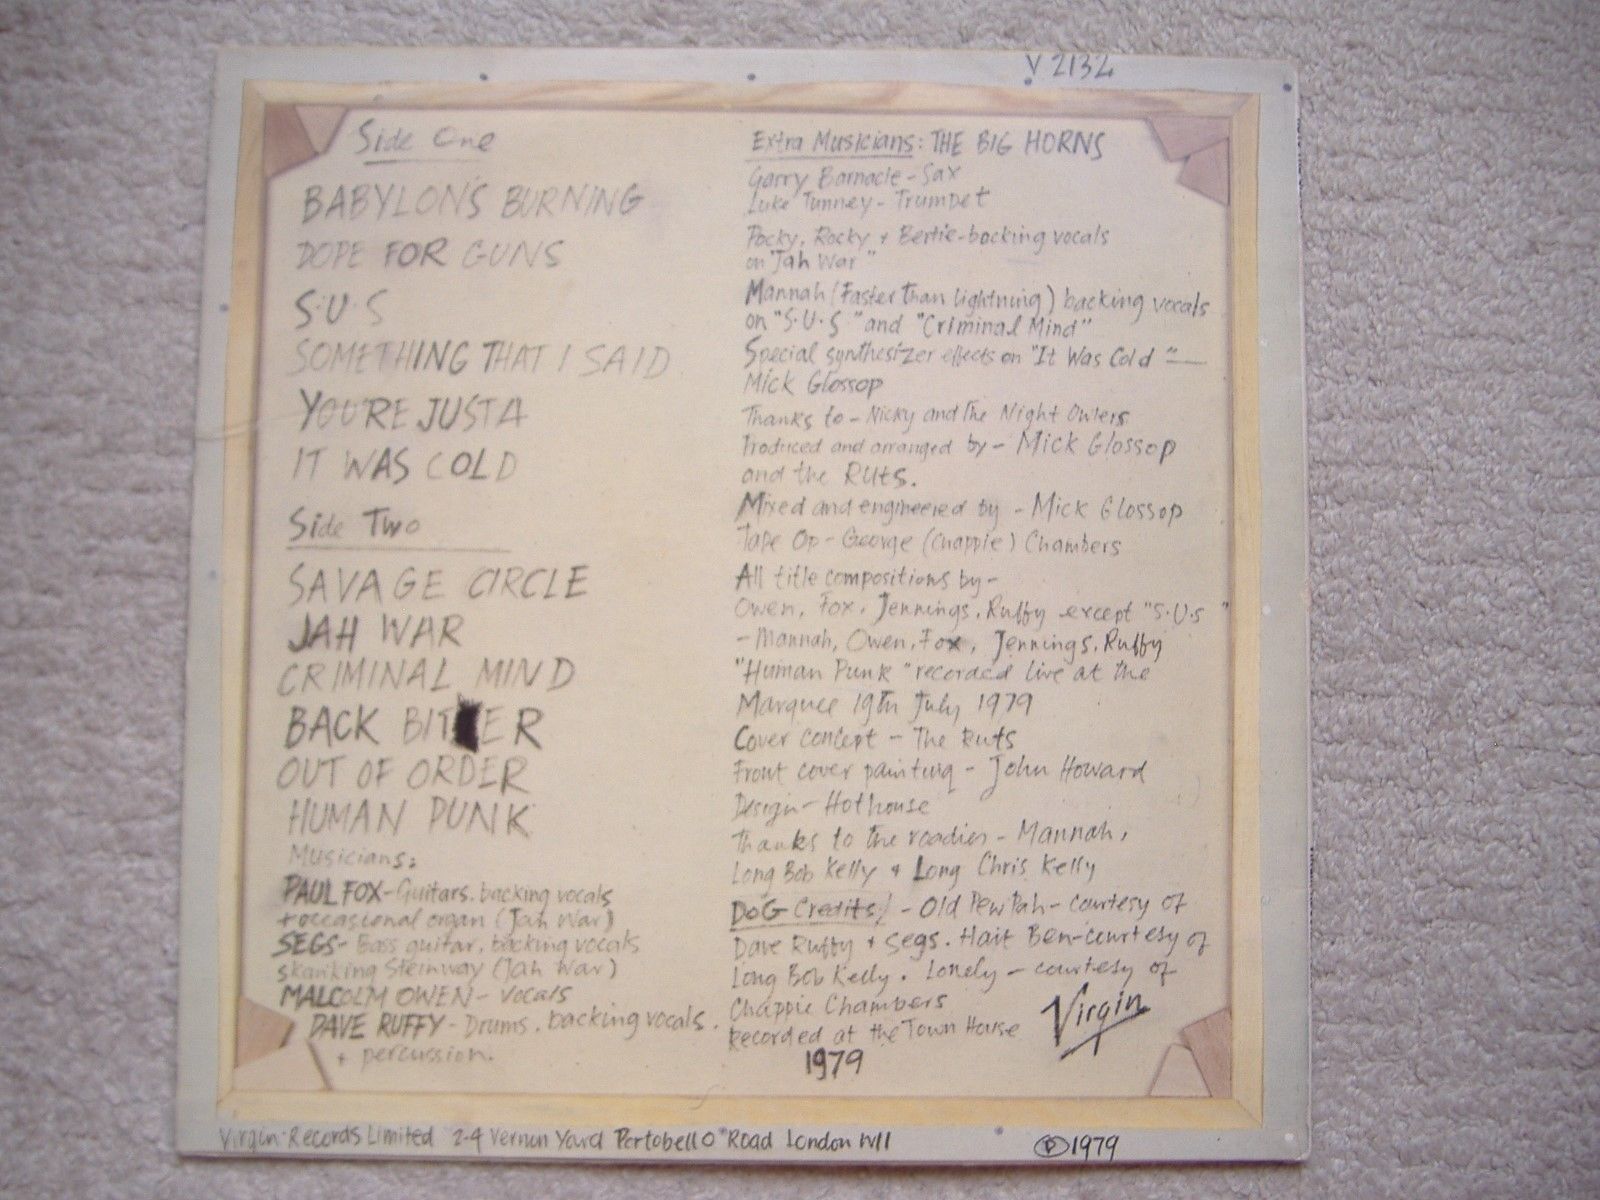 V 2132
Side One
BABYLON'S BURNING
DOPE FOR GUNS
S·U·S
SOMETHING THAT I SAID
YOU'RE JUST A
IT WAS COLD
Side Two
SAVAGE CIRCLE
JAH WAR
CRIMINAL MIND
BACK BITER
OUT OF ORDER
HUMAN PUNK
Musicians:
PAUL FOX - Guitars, backing vocals
+ occasional organ (Jah War)
SEGS - Bass guitar, backing vocals
skanking Steinway (Jah War)
MALCOLM OWEN - vocals
DAVE RUFFY - Drums, backing vocals,
+ percussion.
Extra Musicians: THE BIG HORNS
Garry Barnacle - Sax
Luke Tunney - Trumpet
Pocky, Rocky + Bertie - backing vocals
on "Jah War"
Mannah (Faster Than lightning) backing vocals
on "S·U·S" and "Criminal Mind"
Special synthesizer effects on "It Was Cold" -
Mick Glossop
Thanks to - Nicky and The Night Owlers
Produced and arranged by - Mick Glossop
and the Ruts.
Mixed and engineered by - Mick Glossop
Tape Op - George (Chappie) Chambers
All title compositions by -
Owen, Fox, Jennings, Ruffy except "S·U·S"
- Mannah, Owen, Fox, Jennings, Ruffy
"Human Punk" recorded live at the
Marquee 19th July 1979
Cover concept - The Ruts
Front cover painting - John Howard
Design - Hothouse
Thanks to the roadies - Mannah,
Long Bob Kelly + Long Chris Kelly
DOG Credits! - Old Pew Pah - courtesy of
Dave Ruffy + Segs. Hait Ben - courtesy of
Long Bob Kelly. Lonely - courtesy of
Chappie Chambers
Recorded at the Town House
1979
Virgin
Virgin Records Limited 2-4 Vernon Yard Portobello Road London W11
Ⓟ1979